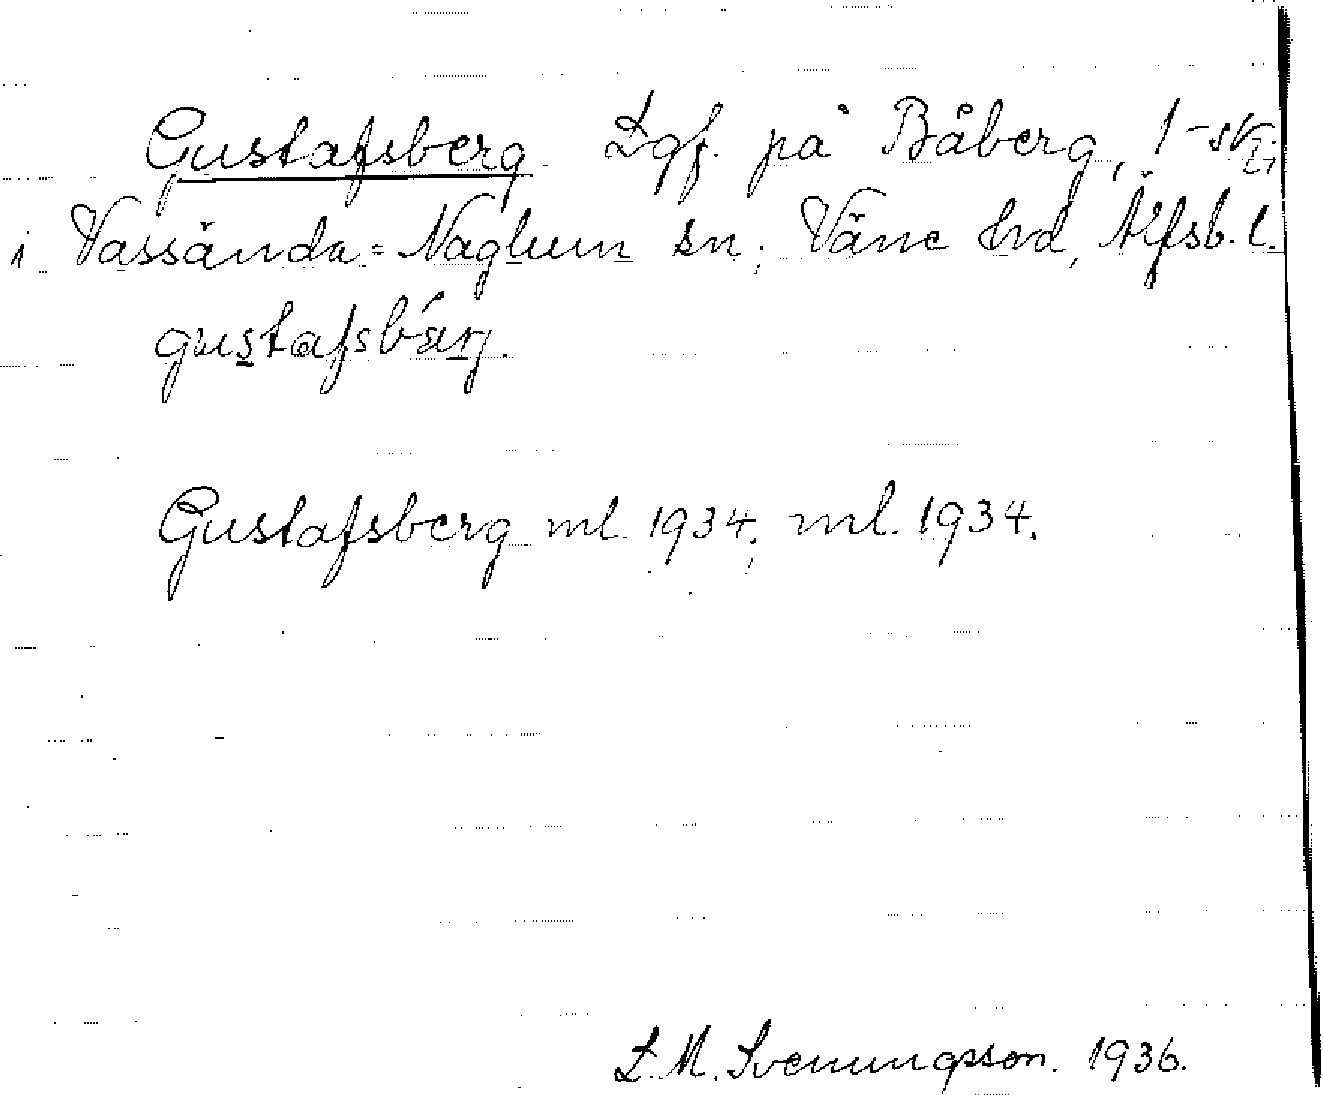 Gustafsberg. Lgf. på Båberg, 1-st
i Vassända=Naglum sn; Väne hrd, Älfsb. l.
gustafsbärj.
Gustafsberg ml. 1934; ml. 1934.
L. M. Svenungsson. 1936.